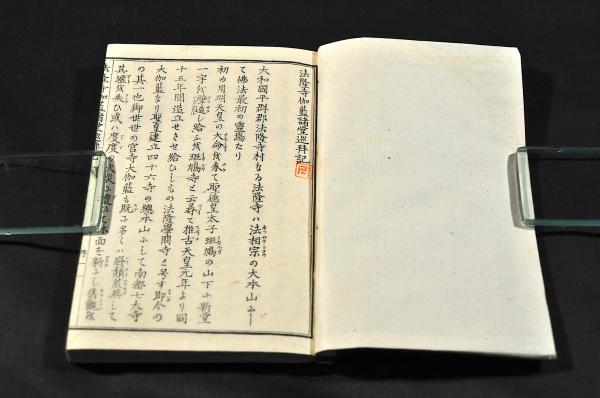 法隆寺伽藍諸堂巡拝記
大和國平群郡法隆寺村なる法隆寺ハ法相宗の大本山ふし
て佛法最初の靈場たり
初め用明天皇の大命を奉て聖德皇太子斑鳩の山下ふ新堂
一宇を建立し給ふを斑鳩寺と云尋て推古天皇元年より同
十五年間造立せさせ給ひしもの法隆學問寺と号す即今の
大伽藍なり聖皇建立四十六寺の總本山ふして南都七大寺
の其一也御世世の宮寺大伽藍も既ふ多くハ廢頽荒無して
其墟を失ひ或ハ度度の 面を新ふし舊觀を